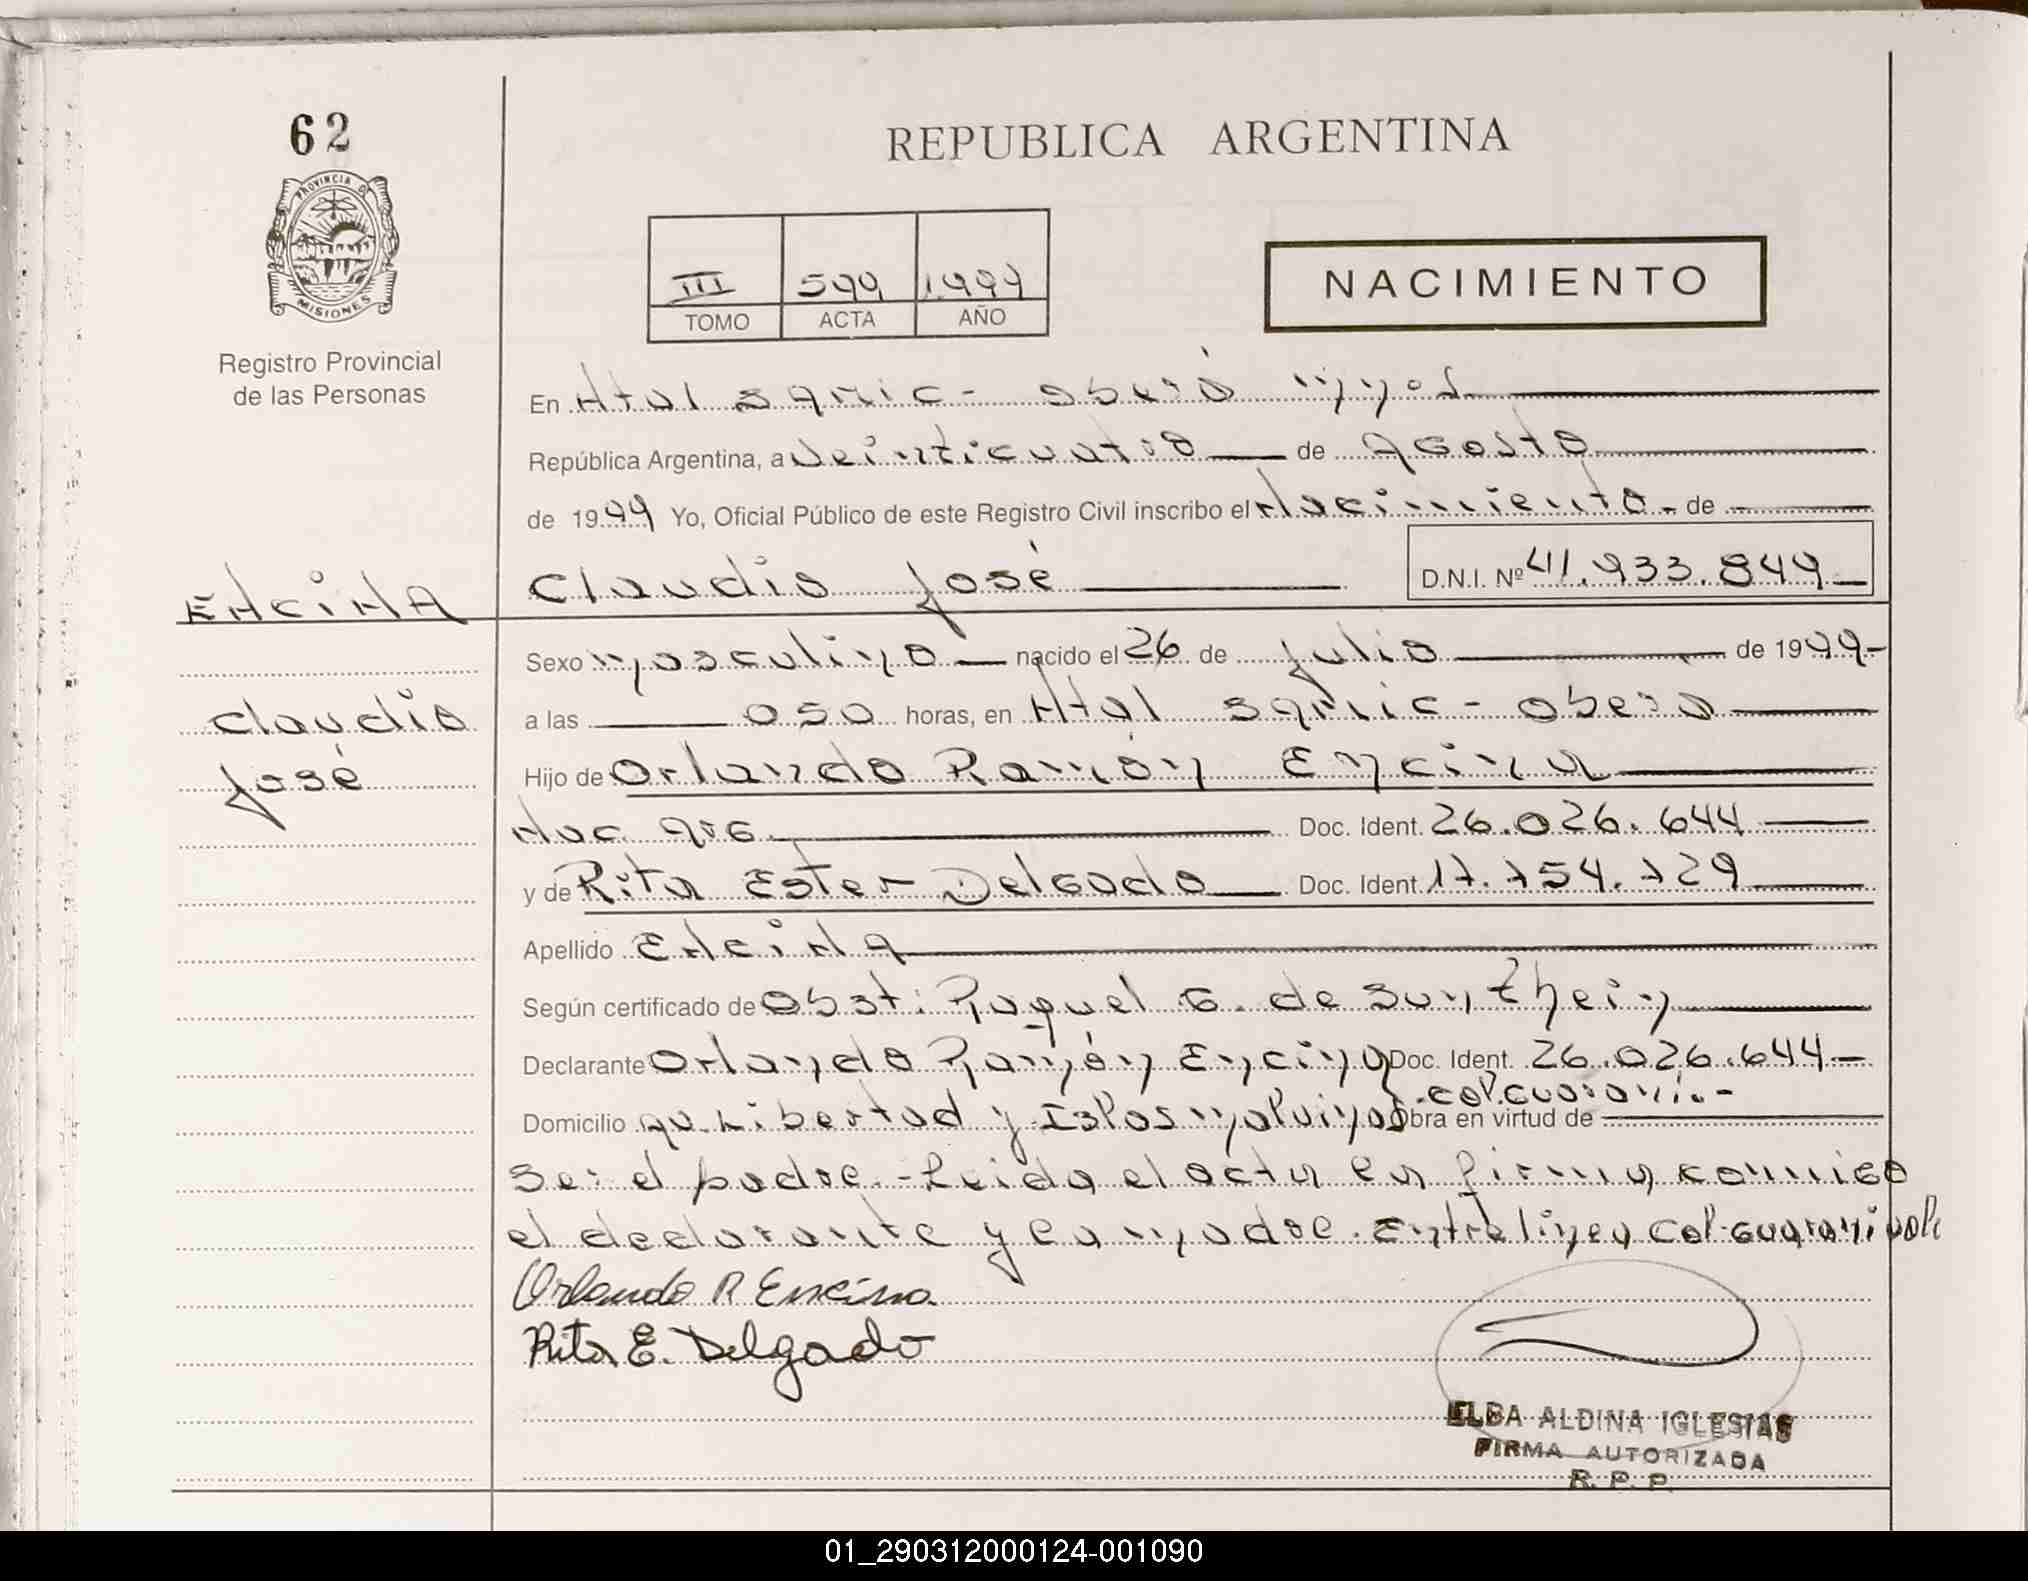 62
REPUBLICA ARGENTINA
PROVINCIA DE
MISIONES
III 599 1.999
TOMO ACTA AÑO
NACIMIENTO
Registro Provincial
de las Personas
En Htal Samic - Oberá Mnes
República Argentina, a Veinticuatro de Agosto
de 1999 Yo, Oficial Público de este Registro Civil inscribo el Nacimiento - de
ENCINA
Claudio José
D.N.I. Nº 41.933.849
Sexo Masculino nacido el 26 de Julio de 1999-
Claudio
José
a las 050 horas, en Htal Samic - Oberá
Hijo de Orlando Ramón Encina
Nac. Arg. Doc. Ident. 26.026.644
y de Rita Ester Delgado Doc. Ident. 17.754.729
Apellido ENCINA
Según certificado de Obst: Raquel G. de Sunthein
Declarante Orlando Ramón Encina Doc. Ident. 26.026.644-
Col. Guaraní.-
Domicilio Av. Libertad y Islas Malvinas Obra en virtud de
ser el padre.- Leida el acta la firma conmigo
el declarante y la madre. Entre linea Col. Guaraní vale
Orlando R Encina
Rita E. Delgado
ELBA ALDINA IGLESIAS
FIRMA AUTORIZADA
R. P. P.
01_290312000124-001090